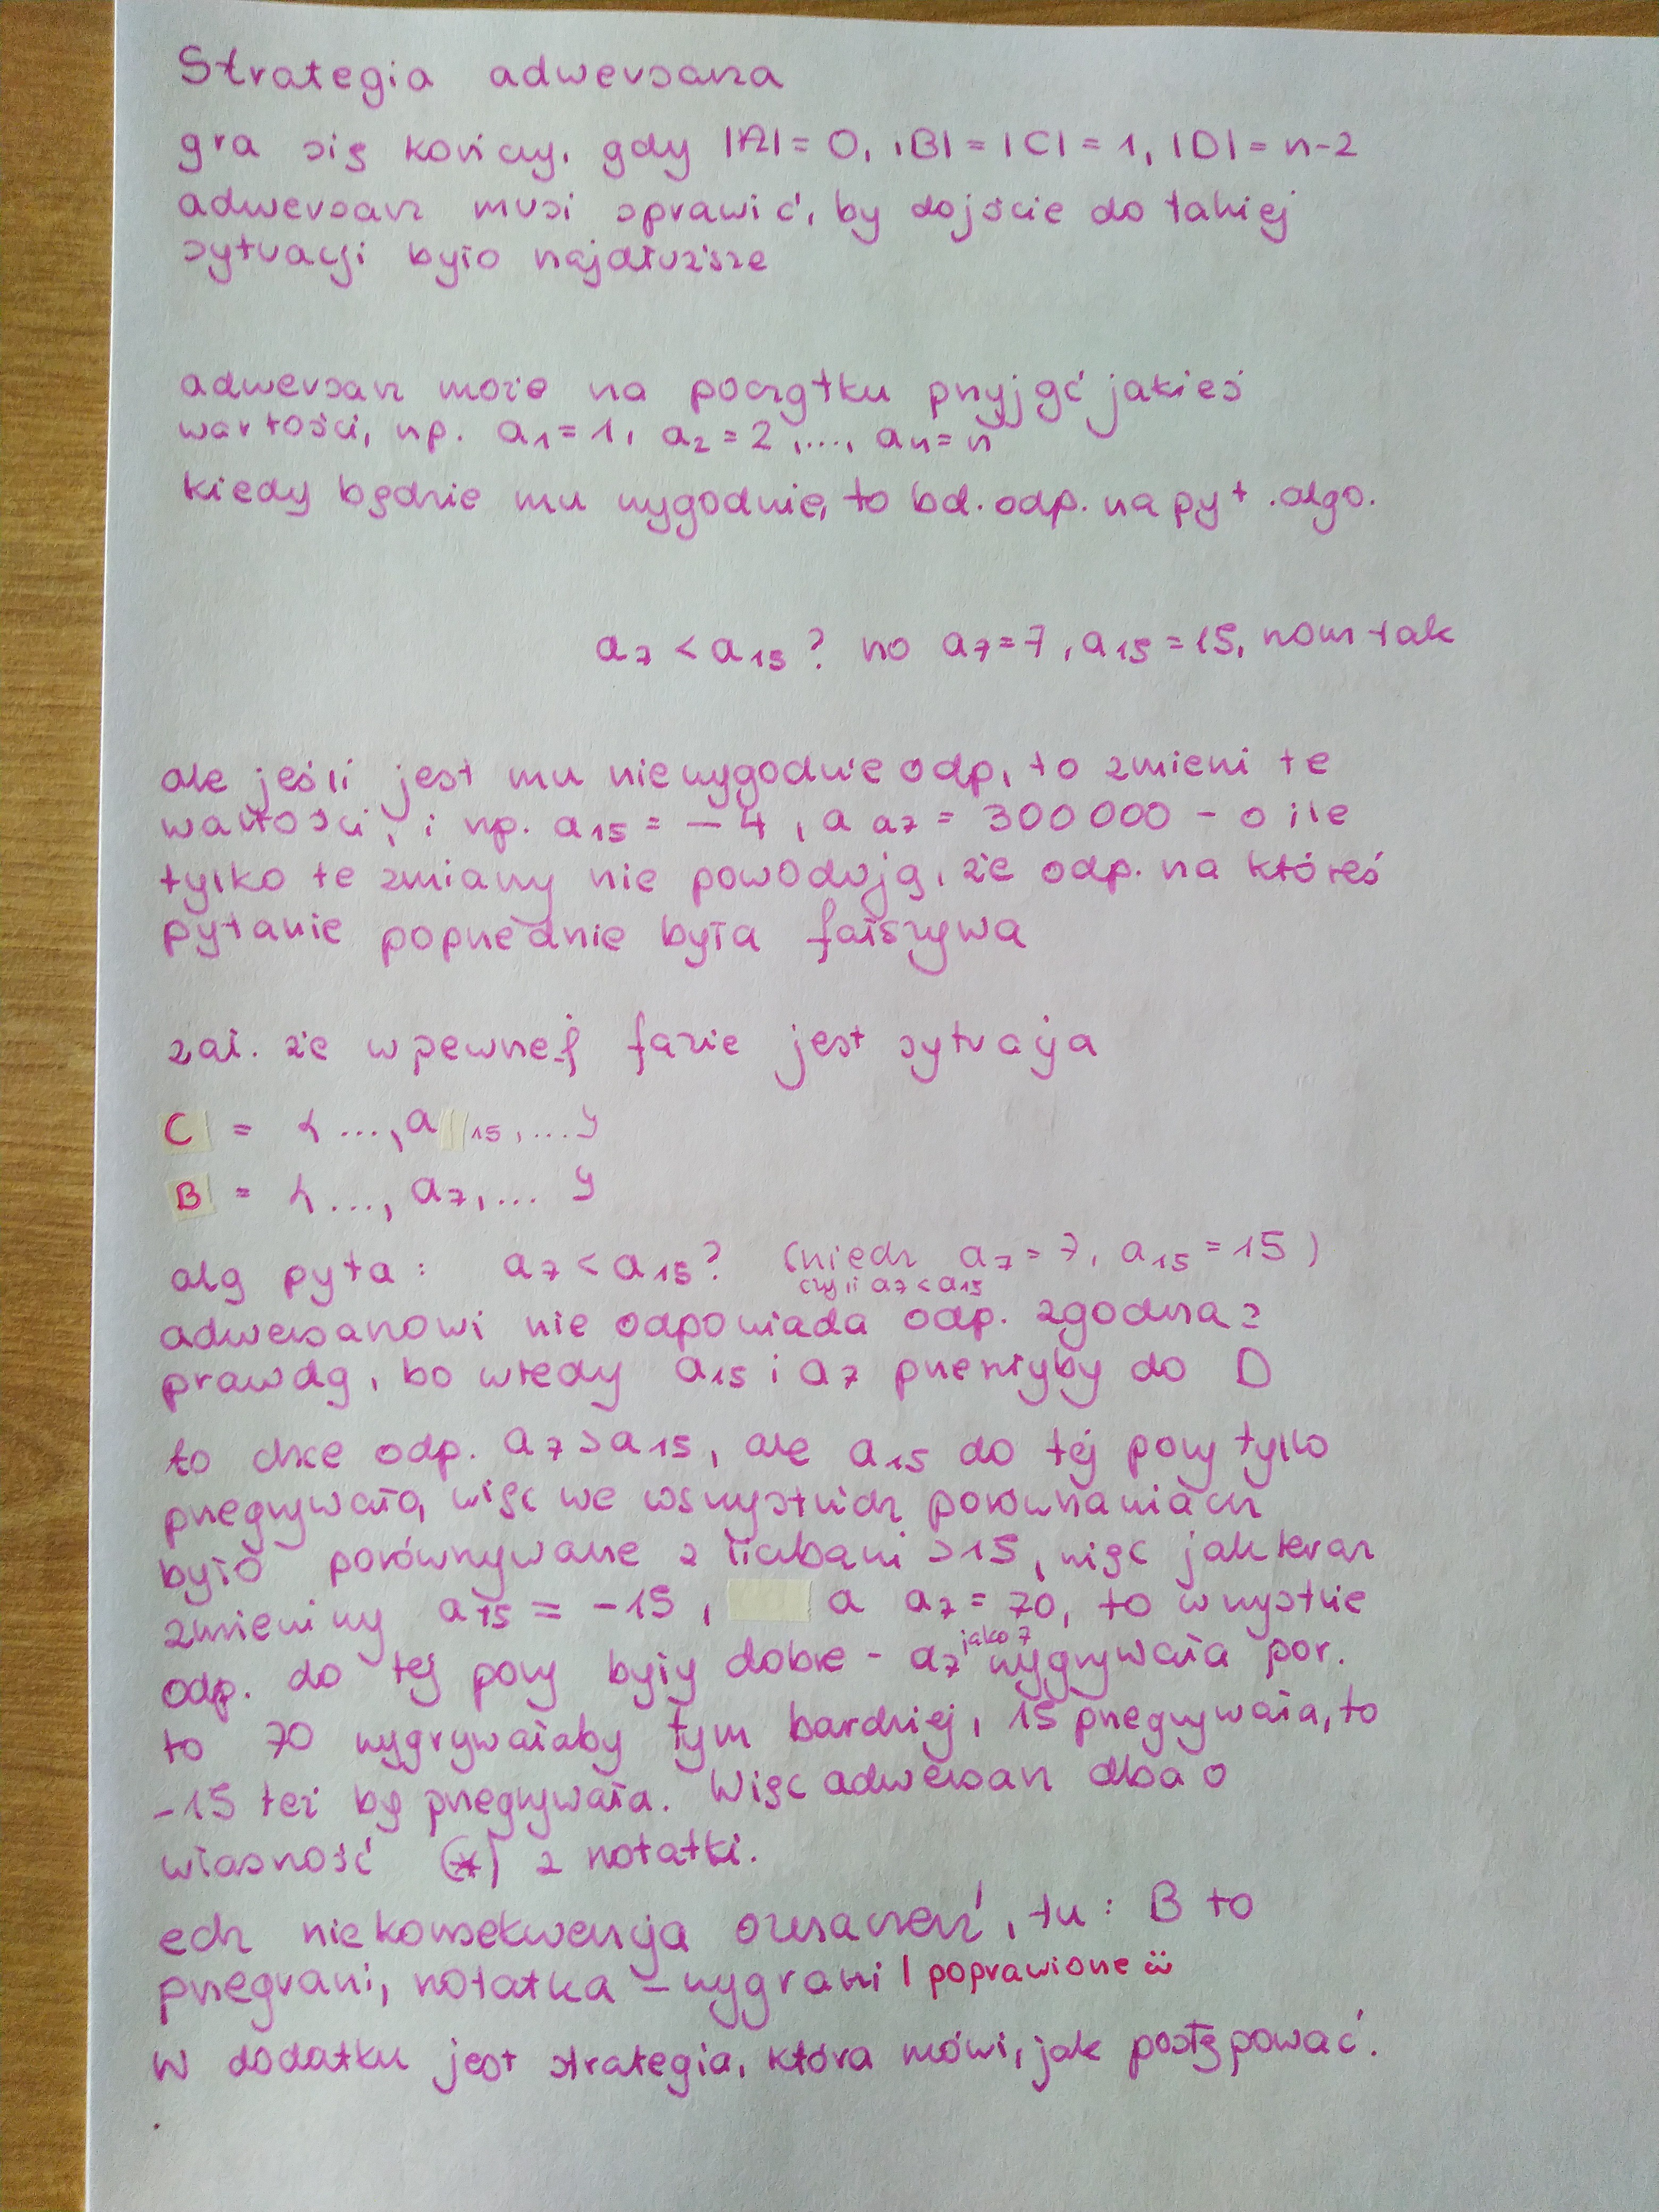 Strategia adwersarza
gra się kończy, gdy |A| = 0, |B| = |C| = 1, |D| = n-2
adwersarz musi sprawić, by dojście do takiej
sytuacji było najdłuższe
adwersarz może na początku przyjąć jakieś
wartości, np. a₁ = 1, a₂ = 2, ..., aₙ = n
kiedy będzie mu wygodnie, to bd. odp. na pyt. algo.
a₇ < a₁₅? no a₇ = 7, a₁₅ = 15, nom tak
ale jeśli jest mu niewygodnie odp, to zmieni te
wartości, i np. a₁₅ = -4, a a₇ = 300 000 - o ile
tylko te zmiany nie powodują, że odp. na któreś
pytanie poprzednie była fałszywa
zał. że w pewnej fazie jest sytuacja
C = {..., a₁₅, ...}
B = {..., a₇, ...}
alg pyta: a₇ < a₁₅? (niech a₇ = 7, a₁₅ = 15)
czyli a₇ < a₁₅
adwersarzowi nie odpowiada odp. zgodna z
prawdą, bo wtedy a₁₅ i a₇ przeszłyby do D
to chce odp. a₇ > a₁₅, ale a₁₅ do tej pory tylko
przegrywała, więc we wszystkich porównaniach
było porównywane z liczbami > 15, więc jak teraz
zmienimy a₁₅ = -15, a a₇ = 70, to wszystkie
odp. do tej pory były dobre - a₇ jako 7 wygrywała por.
to 70 wygrywałaby tym bardziej, 15 przegrywała, to
-15 też by przegrywała. Więc adwersarz dba o
własność (*) z notatki.
ech niekonsekwencja oznaczeń, tu: B to
przegrani, notatka - wygrani | poprawione ü
W dodatku jest strategia, która mówi, jak postępować.